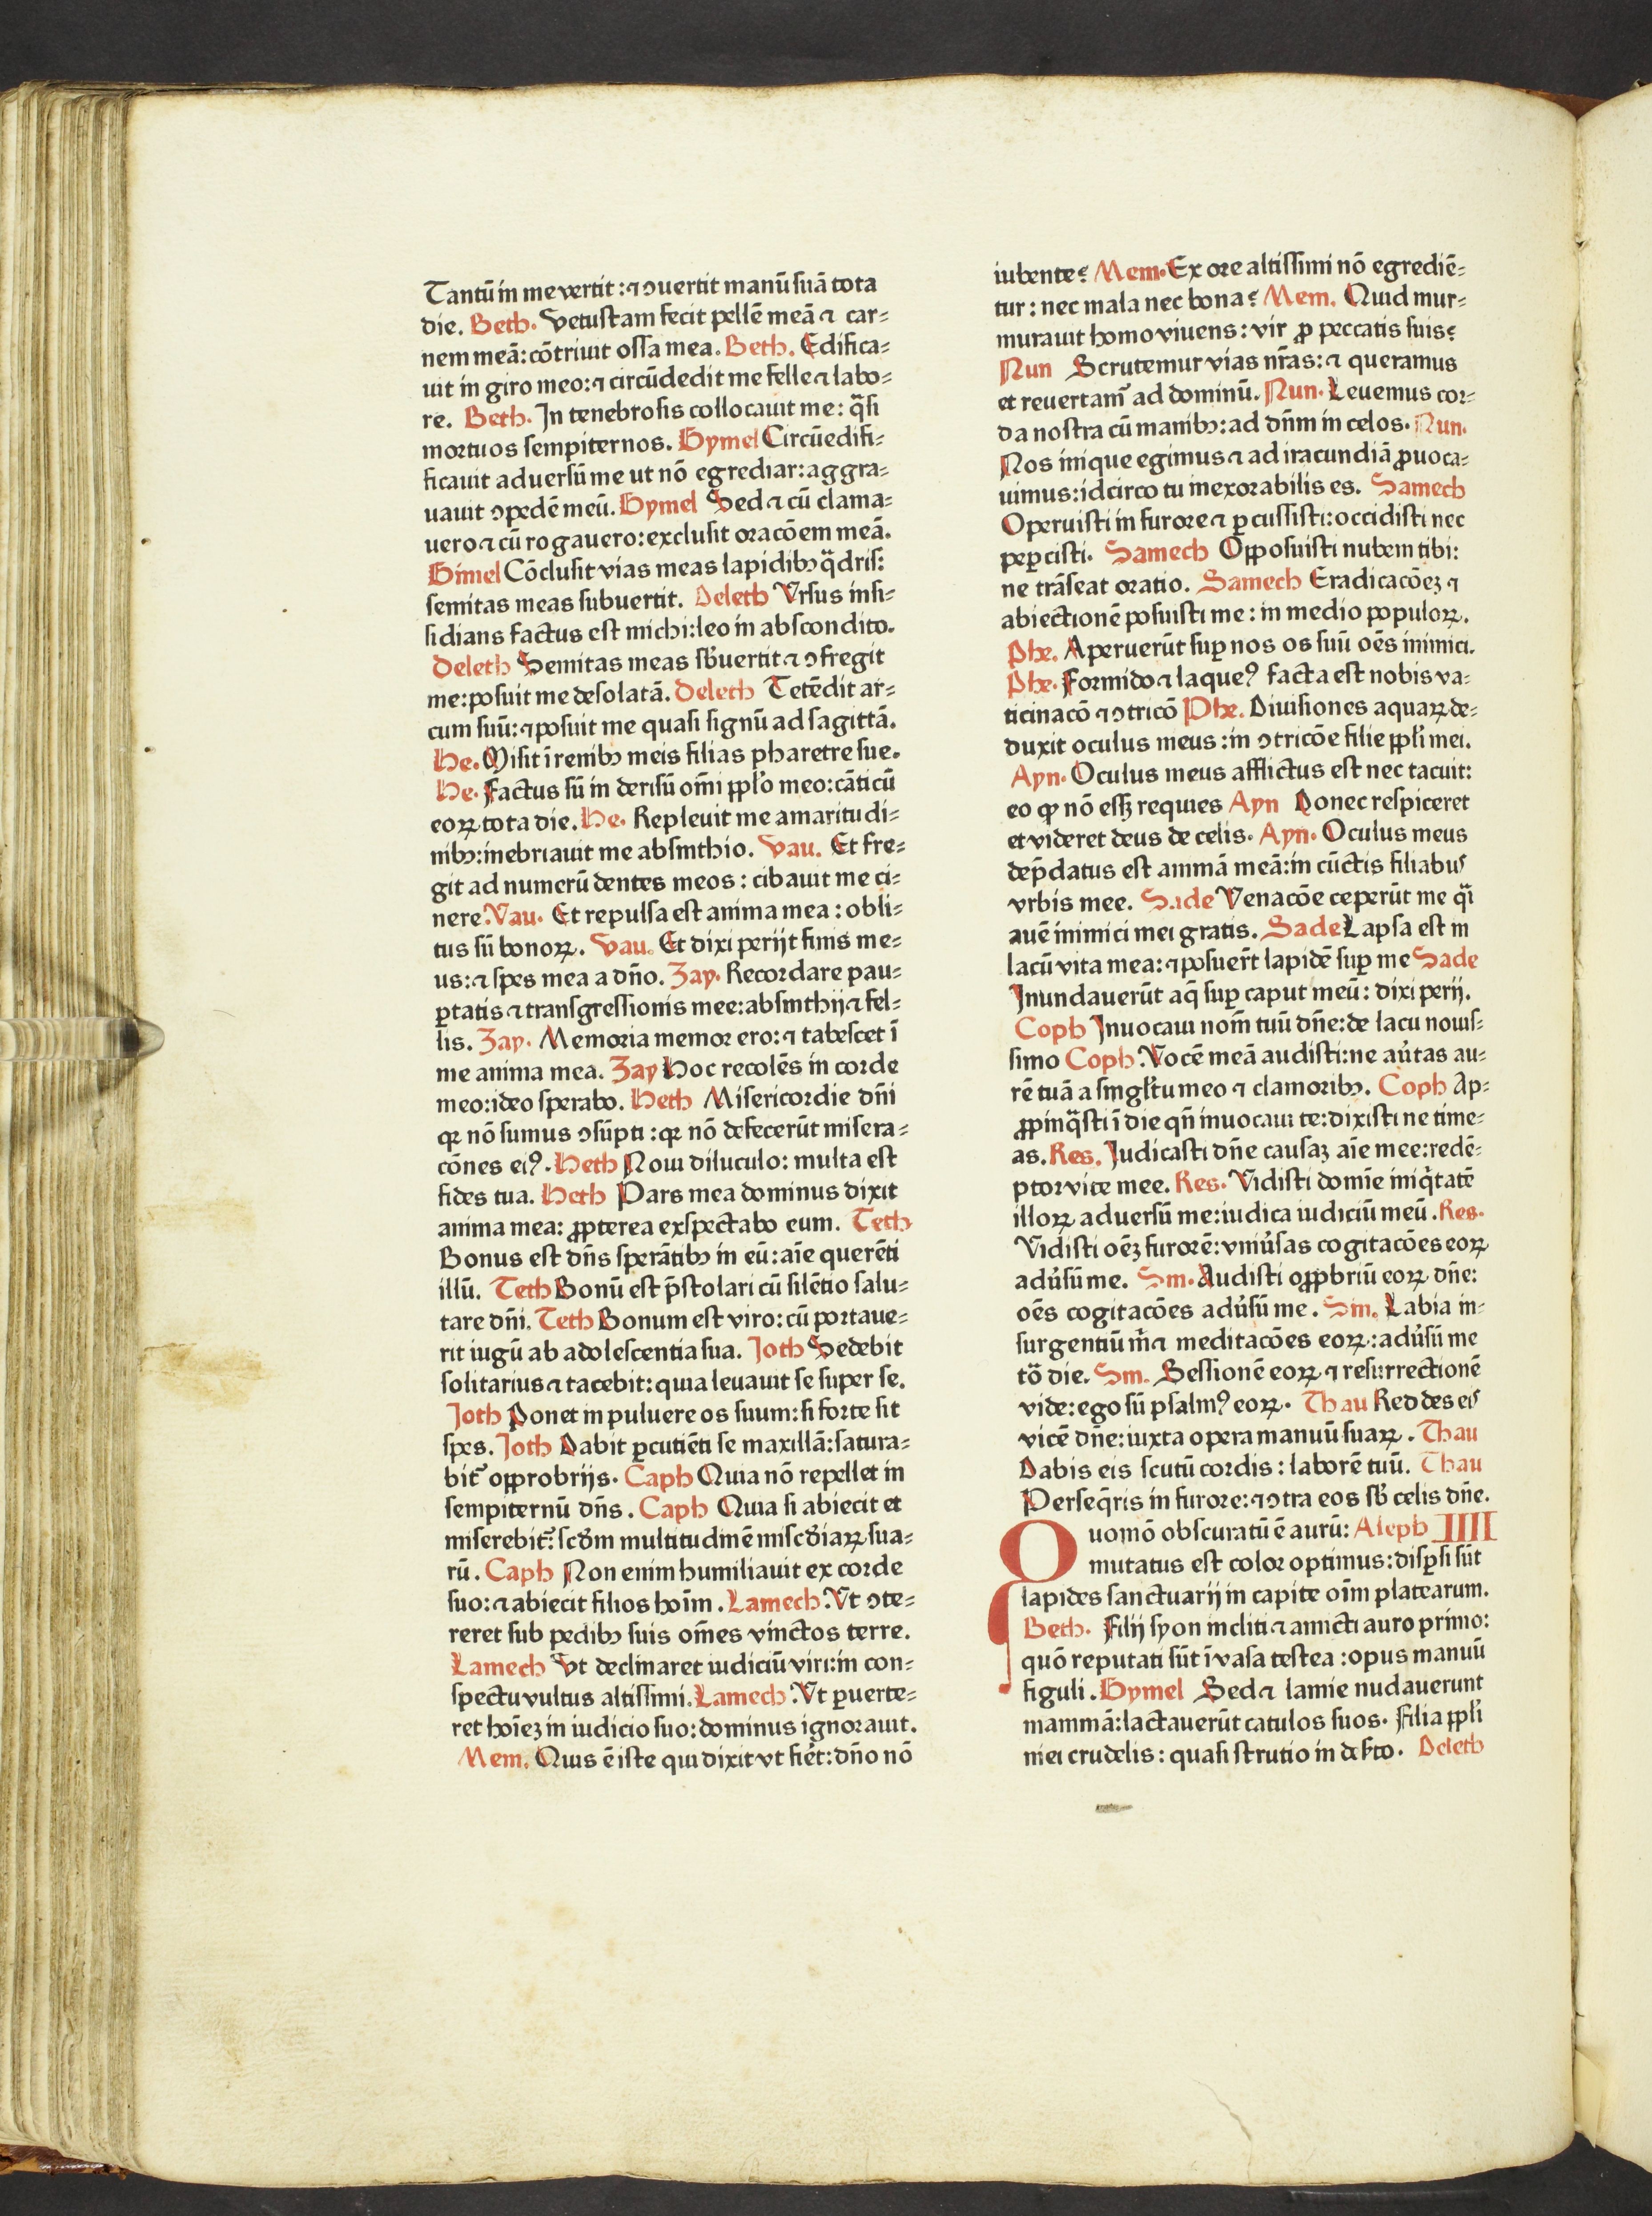 Tantū in me vertit: ⁊ ꝯuertit manū suā tota
die. Beth. Vetustam fecit pellē meā ⁊ car⸗
nem meā: cōtriuit ossa mea. Beth. Edifica⸗
uit in giro meo: ⁊ circūdedit me felle ⁊ labo⸗
re. Beth. In tenebrosis collocauit me: q̄si
mortuos sempiternos. Gymel Circūedifi⸗
ficauit aduersū me ut nō egrediar: aggra⸗
uauit ꝯpedē meū. Gymel Sed ⁊ cū clama⸗
uero ⁊ cū rogauero: exclusit oracōem meā.
Gimel Cōclusit vias meas lapidibꝫ q̄dris:
semitas meas subuertit. Deleth Vrsus insi⸗
sidians factus est michi: leo in abscondito.
Deleth Semitas meas sb̓uertit ⁊ ꝯfregit
me: posuit me desolatā. Deleth Tetēdit ar⸗
cum suū: ⁊ posuit me quasi signū ad sagittā.
He. Misit ī renibꝫ meis filias pharetre sue.
He. Factus sū in derisū om̄i ppl̓o meo: cāticū
eoꝝ tota die. He. Repleuit me amaritudi⸗
nibꝫ: inebriauit me absinthio. Vau. Et fre⸗
git ad numerū dentes meos: cibauit me ci⸗
nere. Vau. Et repulsa est anima mea: obli⸗
tus sū bonoꝝ. Vau. Et dixi perijt finis me⸗
us: ⁊ spes mea a dn̄o. Zay. Recordare pau⸗
ꝑtatis ⁊ transgressionis mee: absinthij ⁊ fel⸗
lis. Zay. Memoria memor ero: ⁊ tabescet ī
me anima mea. Zay Hoc recolēs in corde
meo: ideo sperabo. Heth Misericordie dn̄i
qꝛ nō sumus ꝯsūpti: qꝛ nō defecerūt misera⸗
cōnes eiꝰ. Heth Noui diluculo: multa est
fides tua. Heth Pars mea dominus dixit
anima mea: ꝓpterea exspectabo eum. Teth
Bonus est dn̄s sperātibꝫ in eū: aīe querēti
illū. Teth Bonū est p̄stolari cū silētio salu⸗
tare dn̄i. Teth Bonum est viro: cū portaue⸗
rit iugū ab adolescentia sua. Joth Sedebit
solitarius ⁊ tacebit: quia leuauit se super se.
Joth Ponet in puluere os suum: si forte sit
spes. Joth Dabit ꝑcutiēti se maxillā: satura⸗
bit᷑ opprobrijs. Caph Quia nō repellet in
sempiternū dn̄s. Caph Quia si abiecit et
miserebit᷑: scd̓m multitudinē miscd̓iaꝝ sua⸗
rū. Caph Non enim humiliauit ex corde
suo: ⁊ abiecit filios hoīm. Lamech. Vt ꝯte⸗
reret sub pedibꝫ suis om̄es vinctos terre.
Lamech Vt declinaret iudiciū viri: in con⸗
spectu vultus altissimi. Lamech. Vt ꝑuerte⸗
ret hoīeꝫ in iudicio suo: dominus ignorauit.
Mem. Quis ē iste qui dixit vt fiēt: dn̄o nō
iubente? Mem. Ex ore altissimi nō egrediē⸗
tur: nec mala nec bona? Mem. Quid mur⸗
murauit homo viuens: vir ꝓ peccatis suis?
Nun Scrutemur vias nr̄as: ⁊ queramus
et reuertam᷑ ad dominū. Nun. Leuemus cor⸗
da nostra cū manibꝫ: ad dn̄m in celos. Nun.
Nos inique egimus ⁊ ad iracundiā ꝓuoca⸗
uimus: idcirco tu inexorabilis es. Samech
Operuisti in furore ⁊ ꝑcussisti: occidisti nec
peꝑcisti. Samech Opposuisti nubem tibi:
ne trāseat oratio. Samech Eradicacōeꝫ ⁊
abiectionē posuisti me: in medio populoꝝ.
Phe. Aperuerūt suꝑ nos os suū oēs inimici.
Phe. Formido ⁊ laqueꝰ facta est nobis va⸗
ticinacō ⁊ ꝯtricō Phe. Diuisiones aquaꝝ de⸗
duxit oculus meus: in ꝯtricōe filie ppl̓i mei.
Ayn. Oculus meus afflictus est nec tacuit:
eo ꝙ nō essꝫ requies Ayn Donec respiceret
et videret deus de celis. Ayn. Oculus meus
dep̄datus est animā meā: in cūctis filiabus
vrbis mee. Sade Venacōe ceperūt me q̄i
auē inimici mei gratis. Sade Lapsa est in
lacū vita mea: ⁊ posuer̄t lapidē suꝑ me Sade
Inundauerūt aq̄ suꝑ caput meū: dixi perij.
Coph Inuocaui nom̄ tuū dn̄e: de lacu nouis⸗
simo Coph. Vocē meā audisti: ne au̓tas au⸗
rē tuā a singl̓tu meo ⁊ clamoribꝫ. Coph Ap⸗
ꝓpinq̄sti ī die qn̄ inuocaui te: dixisti ne time⸗
as. Res. Judicasti dn̄e causaꝫ aīe mee: redē⸗
ptor vite mee. Res. Vidisti domīe iniq̇tatē
illoꝝ aduersū me: iudica iudiciū meū. Res.
Vidisti oēꝫ furorē: vniu̓sas cogitacōes eoꝝ
adu̓sū me. Sin. Audisti opꝓbriū eoꝝ dn̄e:
oēs cogitacōes adu̓sū me. Sin. Labia in⸗
surgentiū m̓ ⁊ meditacōes eoꝝ: adu̓sū me
to᷑ die. Sin. Sessionē eoꝝ ⁊ resurrectionē
vide: ego sū psalmꝰ eoꝝ. Thau Reddes eis
vicē dn̄e: iuxta opera manuū suaꝝ. Thau
Dabis eis scutū cordis: laborē tuū. Thau
Perseq̄ris in furore: ⁊ ꝯtra eos sb̓ celis dn̄e.
Quomō obscuratū ē aurū: Aleph IIII
mutatus est color optimus: disꝑsi sūt
lapides sanctuarij in capite oīm platearum.
Beth. Filij syon incliti ⁊ amicti auro primo:
quō reputati sūt ī vasa testea: opus manuū
figuli. Gymel Sed ⁊ lamie nudauerunt
mammā: lactauerūt catulos suos. Filia ppl̓i
mei crudelis: quasi strutio in des̓to. Deleth